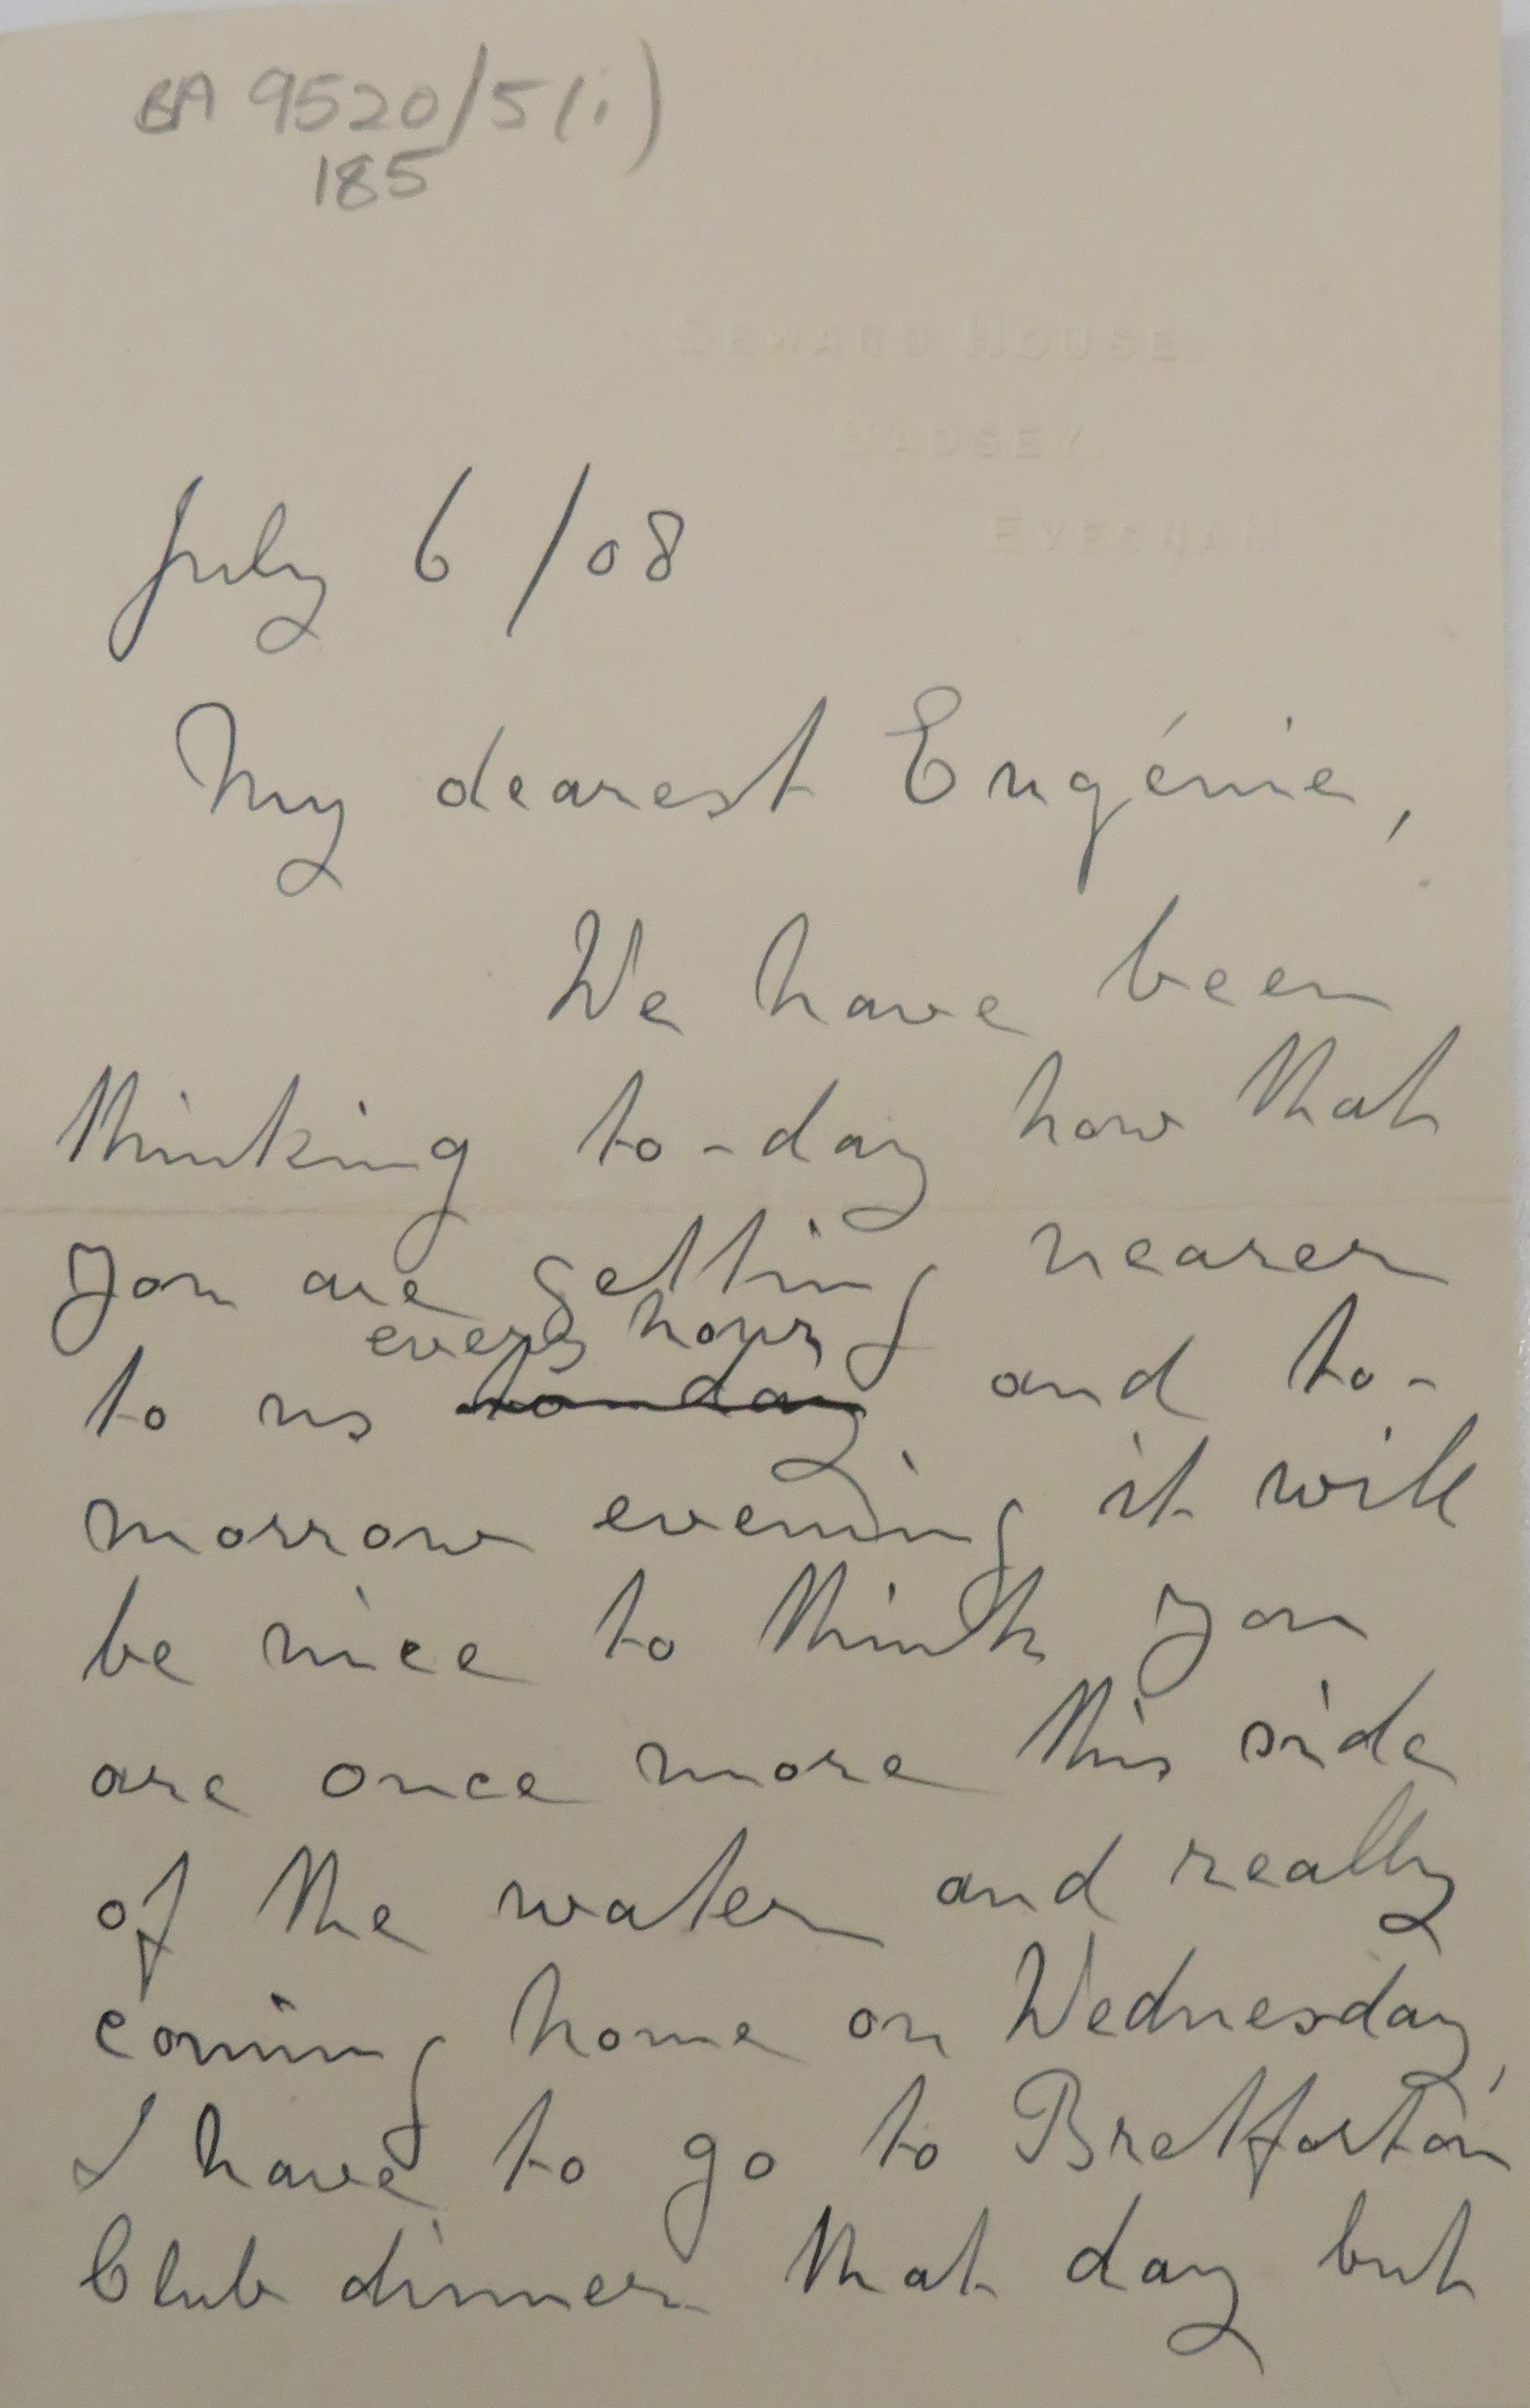 BA 9520/5(i)
185
SEWARD HOUSE,
BADSEY,
EVESHAM
July 6/08
My dearest Eugénie,
We have been
thinking to-day how that
you are getting nearer
every hour
to us to-day and to-
morrow evening it will
be nice to think you
are once more this side
of the water and really
coming home on Wednesday,
I have to go to Bretforton
Club dinner that day but